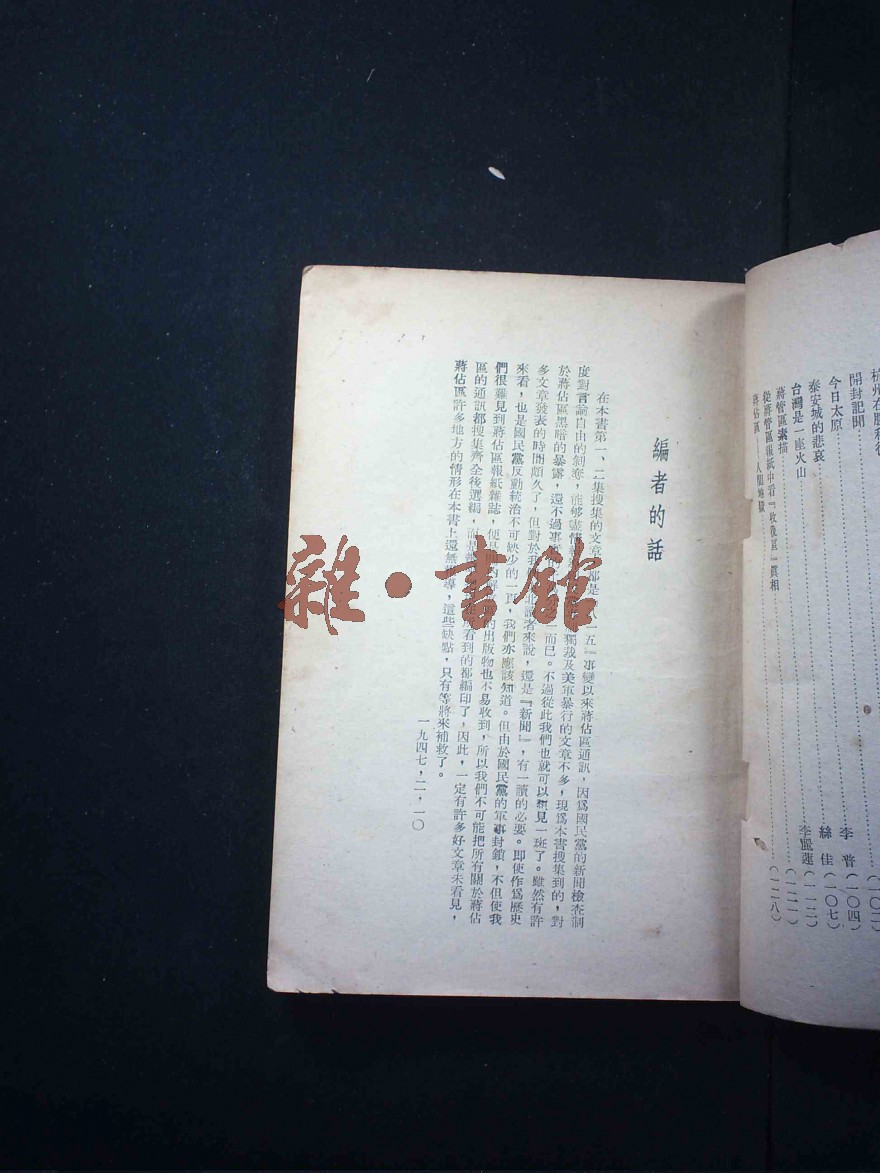 杭州在勝利後
開封記聞
今日太原 李普 (一〇四)
泰安城的悲哀 絲佳 (一〇七)
台灣是一座火山 李麗蓮 (一一二)
蔣管區素描 (一二一)
從蔣管區報紙中看『收復區』真相 (一二八)
蔣佔區——人間地獄
編者的話
在本書第一、二集搜集的文章 都是 一五』事變以來蔣佔區通訊,因爲國民黨的新聞檢查制
度對言論自由的剝奪,能够盡情 獨裁及美軍暴行的文章不多,現爲本書搜集到的,對
於蔣佔區黑暗的暴露,還不過事 一而已。不過從此我們也就可以想見一斑了。雖然有許
多文章發表的時間頗久了,但對於我 北讀者來說,還是『新聞』,有一讀的必要。即使作爲歷史
來看,也是國民黨反動統治不可缺少的一頁,我們亦應該知道。但由於國民黨的軍事封鎖,不但使我
們很難見到蔣佔區報紙雜誌,便是 內 的出版物也不易收到,所以我們不可能把所有關於蔣佔
區的通訊都搜集齊全後選編,而是 看到的都編印了,因此,一定有許多好文章未看見,
蔣佔區許多地方的情形在本書上還無 導,這些缺點,只有等將來補救了。
一九四七,二,一〇
雜·書館